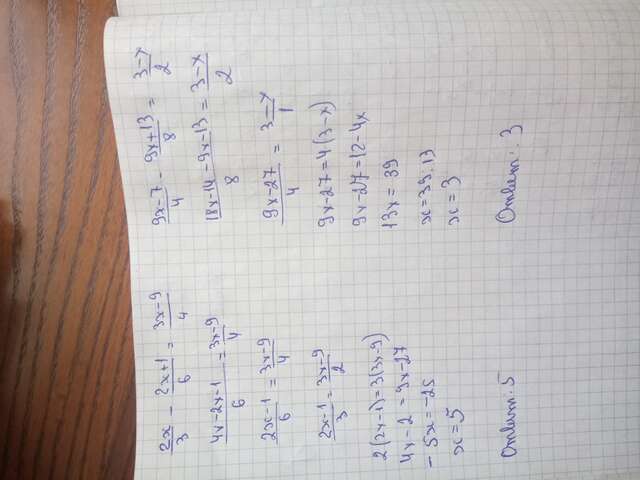 2x/3 - 2x+1/6 = 3x-9/4
4x-2x-1/6 = 3x-9/4
2x-1/6 = 3x-9/4
2x-1/3 = 3x-9/2
2(2x-1)=3(3x-9)
4x-2=9x-27
-5x=-25
x=5
Ответ: 5
9x-7/4 - 9x+13/8 = 3-x/2
18x-14-9x-13/8 = 3-x/2
9x-27/4 = 3-x/1
9x-27=4(3-x)
9x-27=12-4x
13x=39
x=39:13
x=3
Ответ: 3